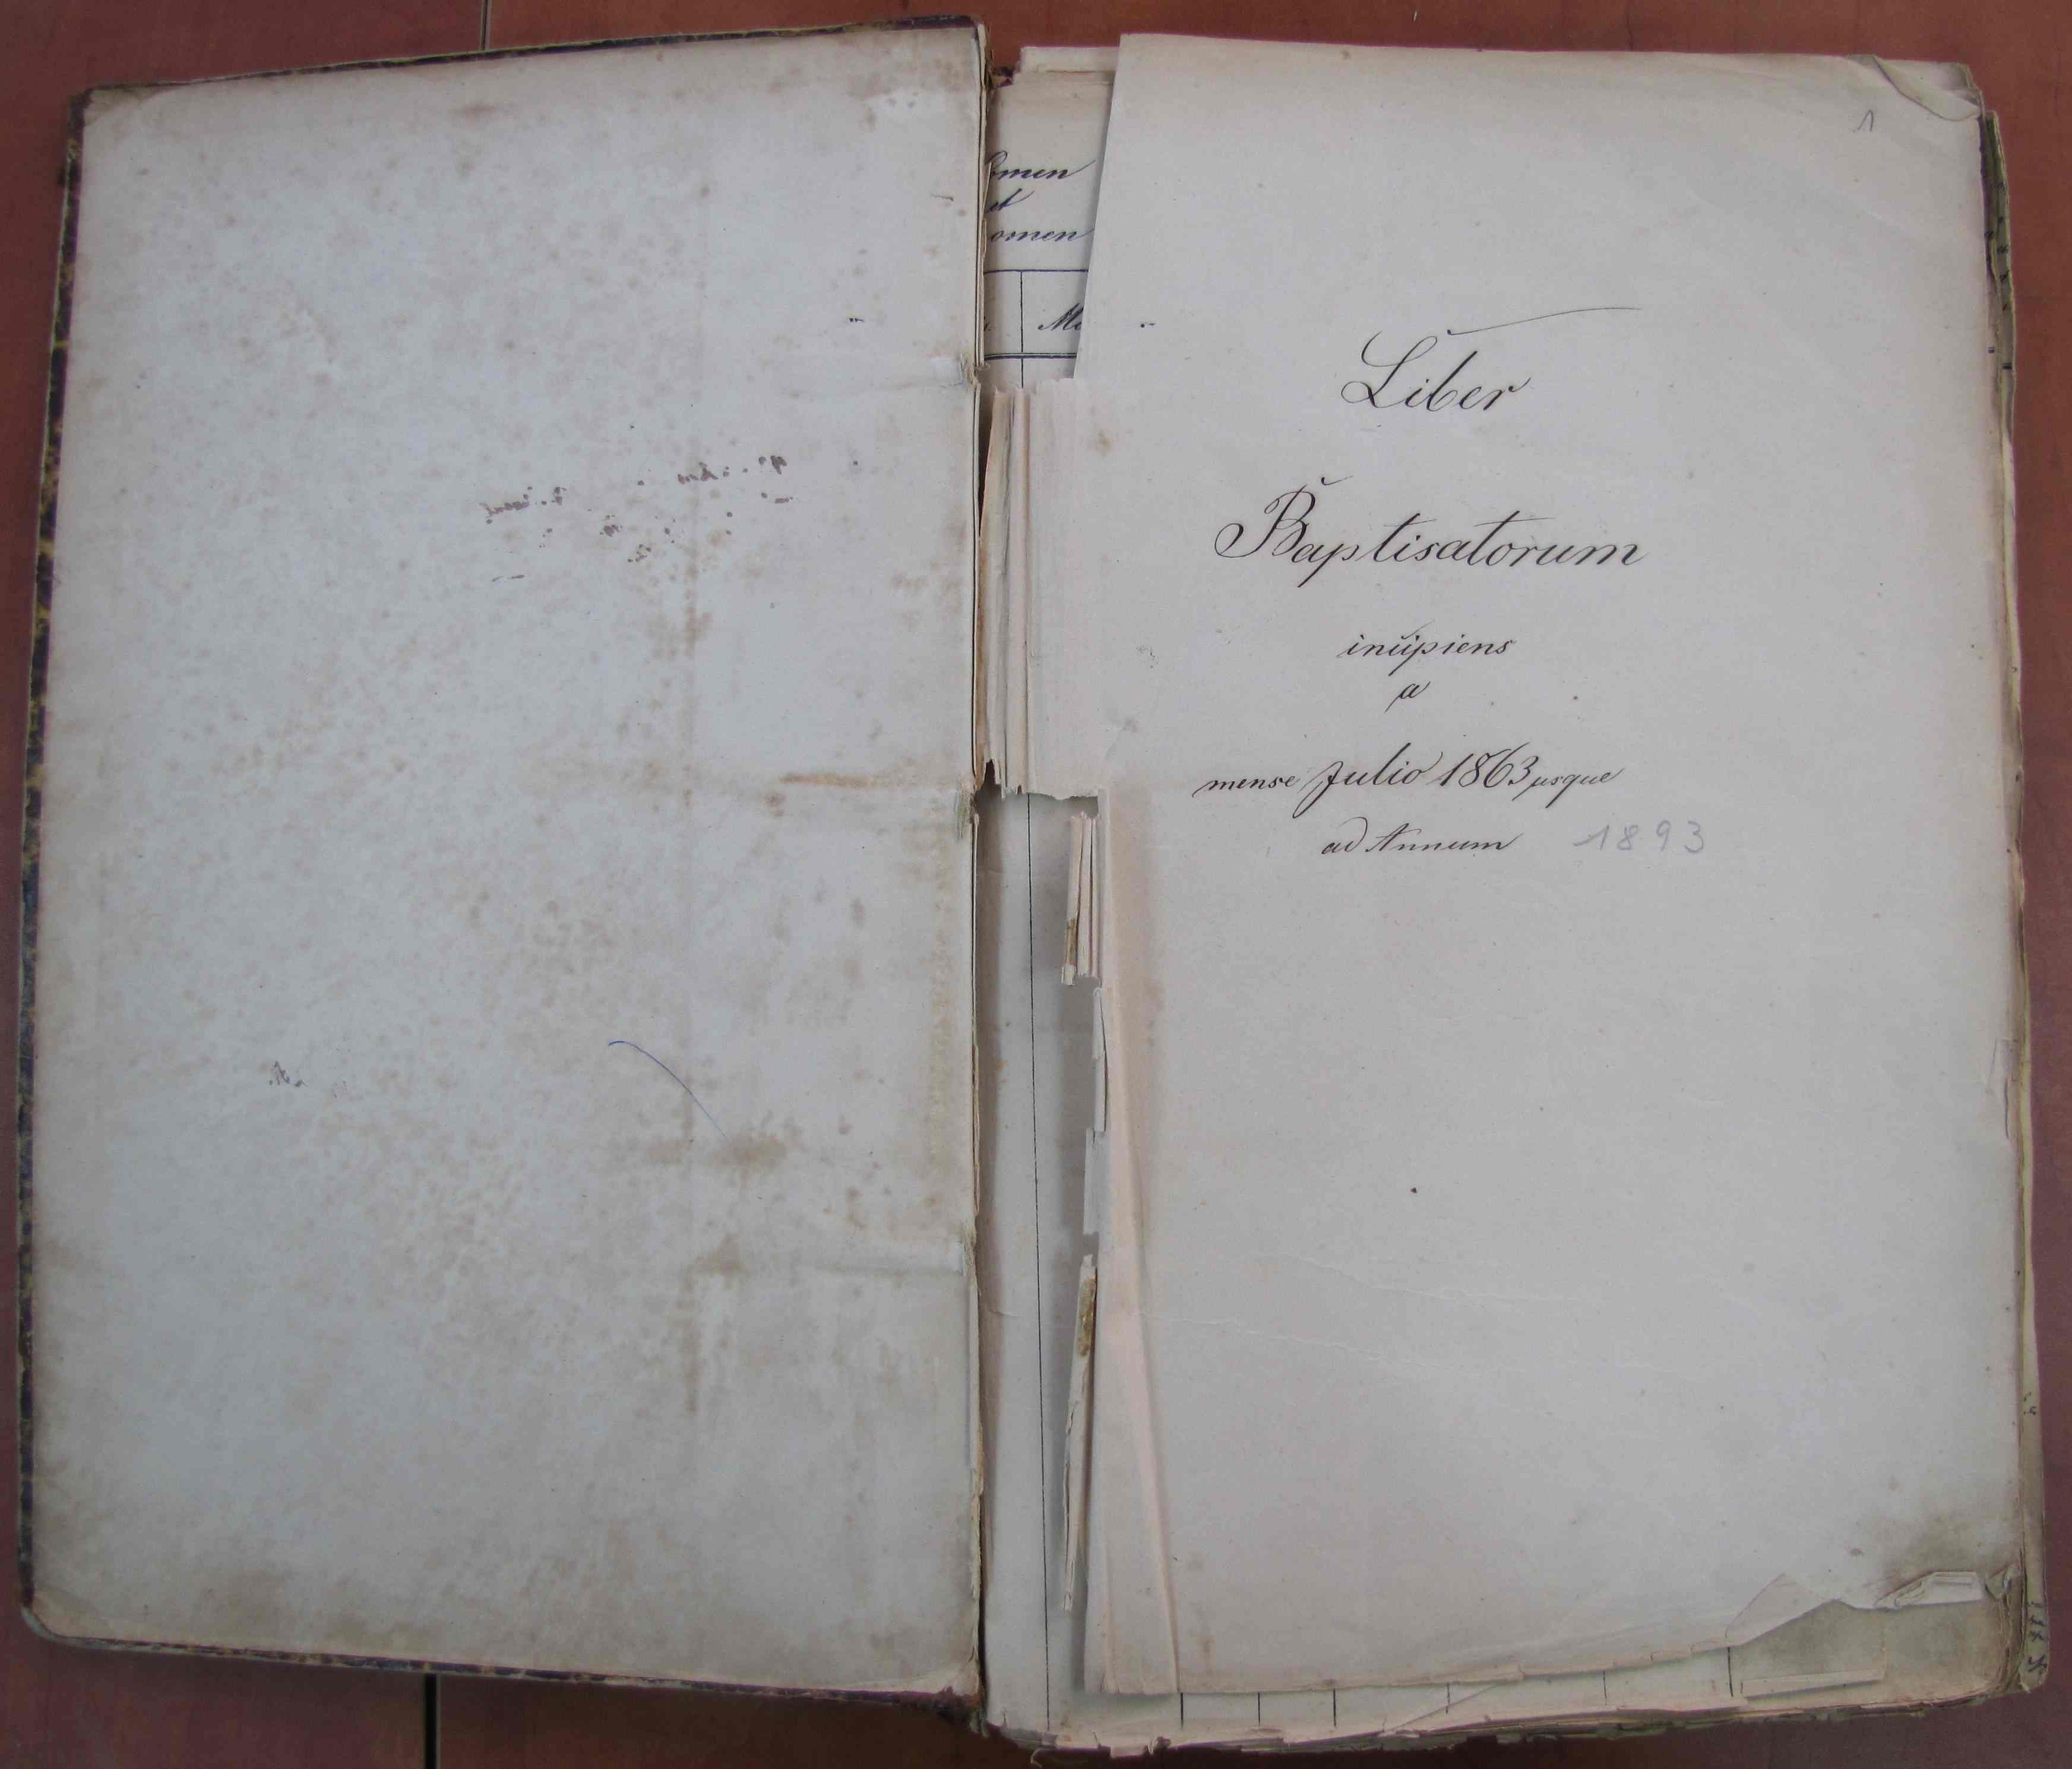 1
omen
et
omen
Liber
Baptisatorum
incipiens
a
mense Julio 1863 usque
ad Annum 1893